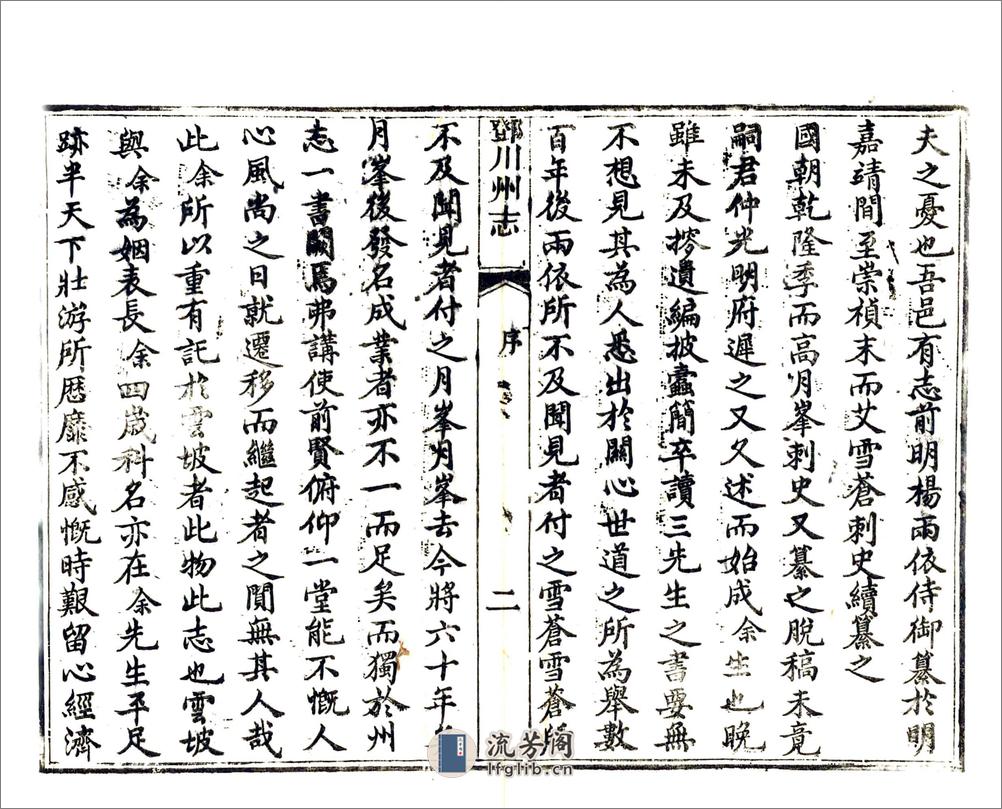 夫之憂也吾邑有志前明楊兩依侍御纂於明
嘉靖間至崇禎末而艾雪蒼刺史續纂之
國朝乾隆季而高月峯刺史又纂之脫稿未竟
嗣君仲光明府遲之又久述而始成余生也晚
雖未及搭遺編披蠹簡卒讀三先生之書要無
不想見其為人悉出於關心世道之所為舉數
百年後兩依所不及聞見者付之雪蒼雪蒼所
鄧川州志
序
二
不及聞見者付之月峯月峯去今將六十年
月峯後發名成業者亦不一而足矣而獨於州
志一書闕焉弗講使前賢俯仰一堂能不慨人
心風尚之日就遷移而繼起者之閴無其人哉
此余所以重有託於雲坡者此物此志也雲坡
與余為姻表長余四歲科名亦在余先生平足
跡半天下壯游所歷靡不感慨時艱留心經濟
流芳閣
lfglib.cn